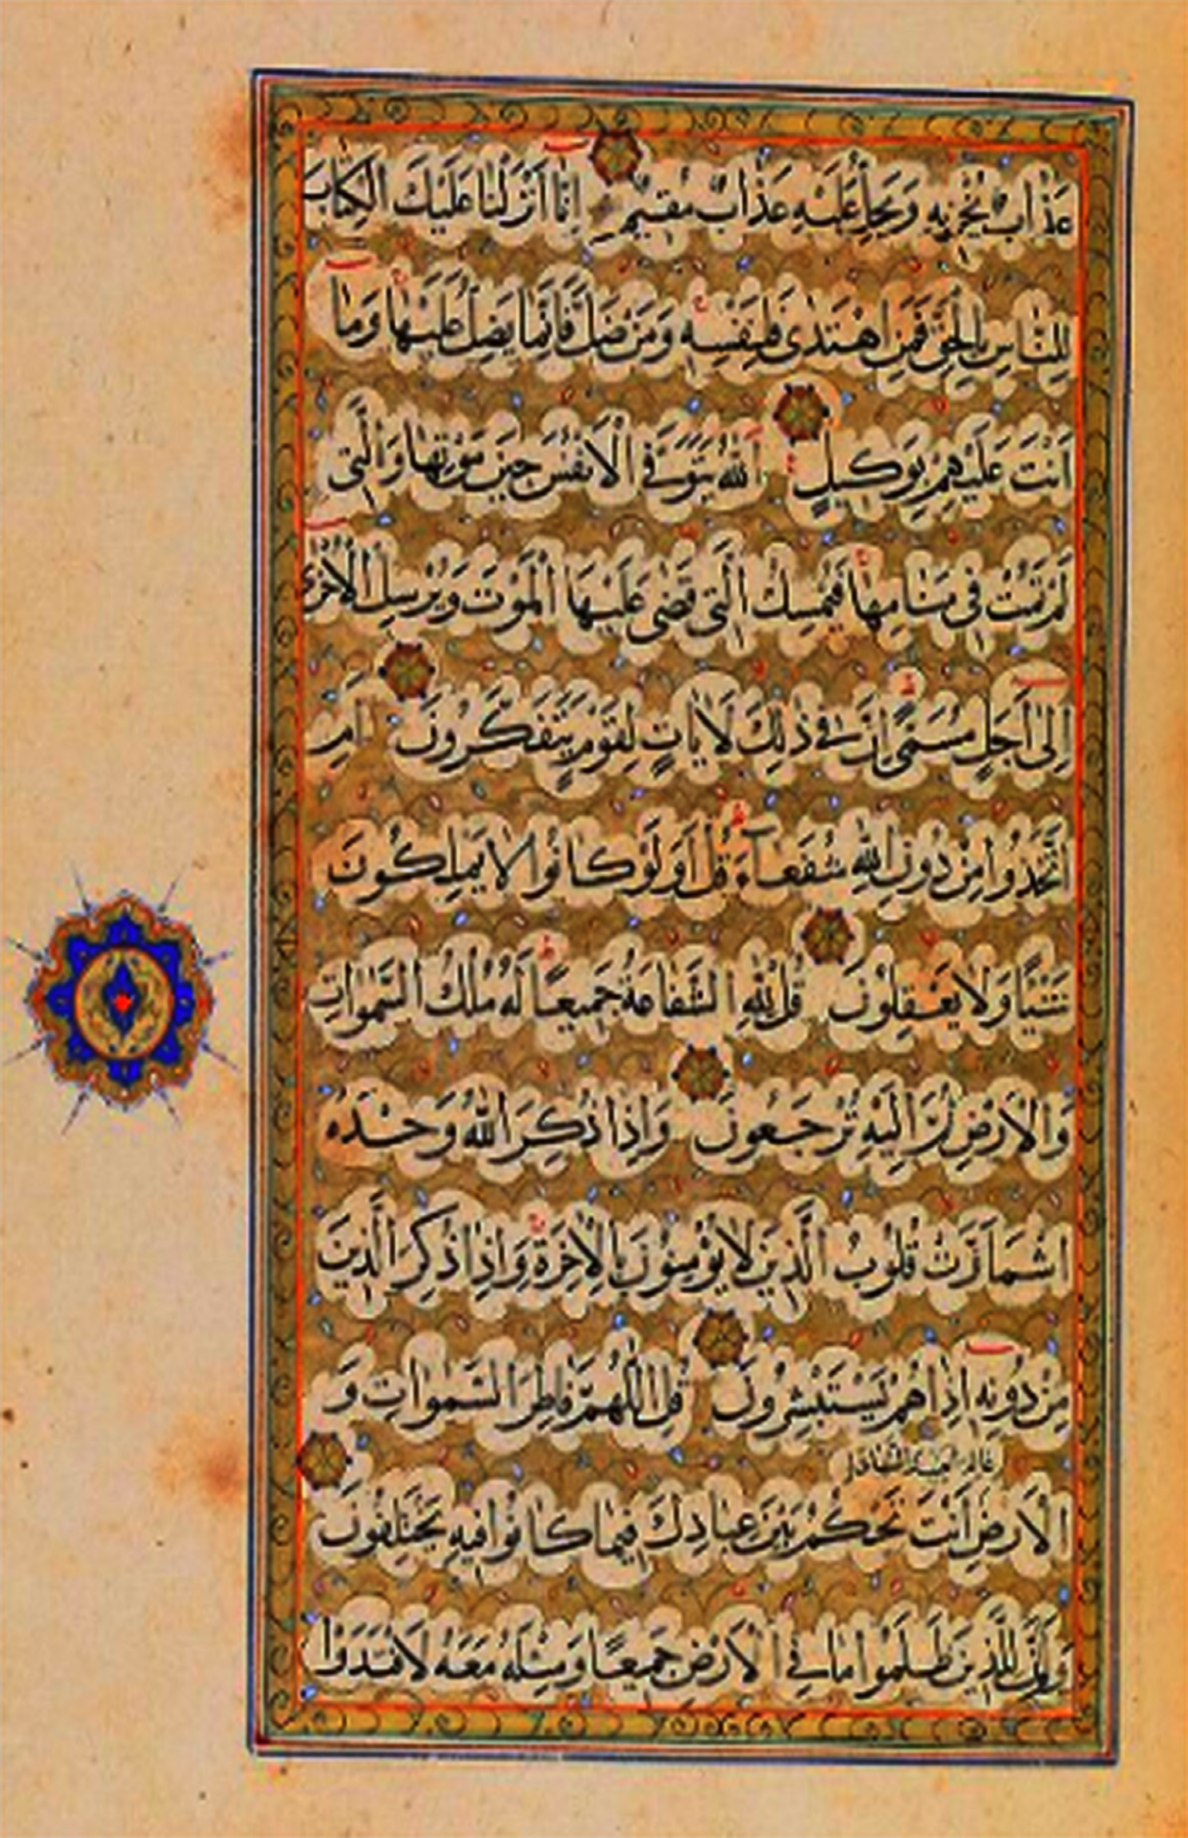 عَذَابٌ يُخْزِيهِ وَيَحِلُّ عَلَيْهِ عَذَابٌ مُقِيمٌ اِنَّا اَنْزَلْنَا عَلَيْكَ الْكِتَابَ
لِلنَّاسِ بِالْحَقِّ فَمَنِ اهْتَدَى فَلِنَفْسِهِ وَمَنْ ضَلَّ فَاِنَّمَا يَضِلُّ عَلَيْهَا وَمَا
اَنْتَ عَلَيْهِمْ بِوَكِيلٍ اَللّٰهُ يَتَوَفَّى الْاَنْفُسَ حِينَ مَوْتِهَا وَالَّتِى
لَمْ تَمُتْ فِى مَنَامِهَا فَيُمْسِكُ الَّتِى قَضَى عَلَيْهَا الْمَوْتَ وَيُرْسِلُ الْاُخْرَى
اِلَى اَجَلٍ مُسَمًّى اِنَّ فِى ذٰلِكَ لَاٰيَاتٍ لِقَوْمٍ يَتَفَكَّرُونَ اَمِ
اتَّخَذُوا مِنْ دُونِ اللّٰهِ شُفَعَاۤءَ قُلْ اَوَلَوْ كَانُوا لَا يَمْلِكُونَ
شَيْئًا وَلَا يَعْقِلُونَ قُلْ لِلّٰهِ الشَّفَاعَةُ جَمِيعًا لَهُ مُلْكُ السَّمٰوَاتِ
وَالْاَرْضِ ثُمَّ اِلَيْهِ تُرْجَعُونَ وَاِذَا ذُكِرَ اللّٰهُ وَحْدَهُ
اشْمَاَزَّتْ قُلُوبُ الَّذِينَ لَا يُؤْمِنُونَ بِالْاٰخِرَةِ وَاِذَا ذُكِرَ الَّذِينَ
مِنْ دُونِهِ اِذَا هُمْ يَسْتَبْشِرُونَ قُلِ اللّٰهُمَّ فَاطِرَ السَّمٰوَاتِ وَ
عالم الغيب والشهادة
الْاَرْضِ اَنْتَ تَحْكُمُ بَيْنَ عِبَادِكَ فِيمَا كَانُوا فِيهِ يَخْتَلِفُونَ
وَلَوْ اَنَّ لِلَّذِينَ ظَلَمُوا مَا فِى الْاَرْضِ جَمِيعًا وَمِثْلَهُ مَعَهُ لَافْتَدَوْا